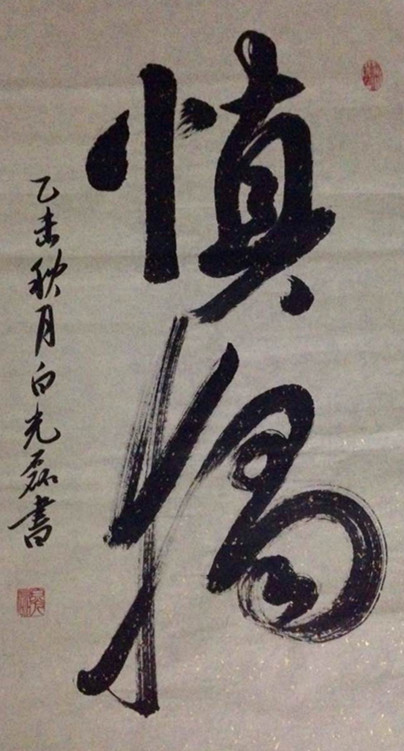 慎獨
乙未秋月白光磊書